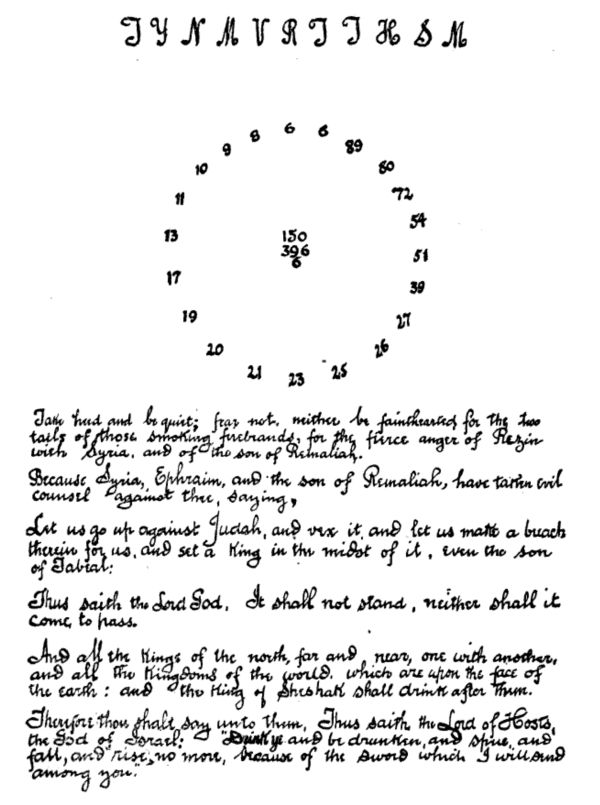 T Y N M V R T T H S M
6
6
89
80
72
54
51
39
27
26
25
23
21
20
19
17
13
11
10
9
8
150
396
6
Take heed and be quiet; fear not, neither be fainthearted for the two
tails of those smoking firebrands, for the fierce anger of Rezin
with Syria, and of the son of Remaliah.
Because Syria, Ephraim, and the son of Remaliah, have taken evil
counsel against thee, saying,
Let us go up against Judah, and vex it, and let us make a breach
therein for us, and set a King in the midst of it, even the son
of Tabeal:
Thus saith the Lord God, It shall not stand, neither shall it
come to pass.
And all the Kings of the north, far and near, one with another,
and all the Kingdoms of the world, which are upon the face of
the earth: and the King of Sheshak shall drink after them.
Therefore thou shalt say unto them, Thus saith the Lord of Hosts,
the God of Israel: "Drink ye and be drunken, and spue, and
fall, and rise no more, because of the sword which I will send
among you."